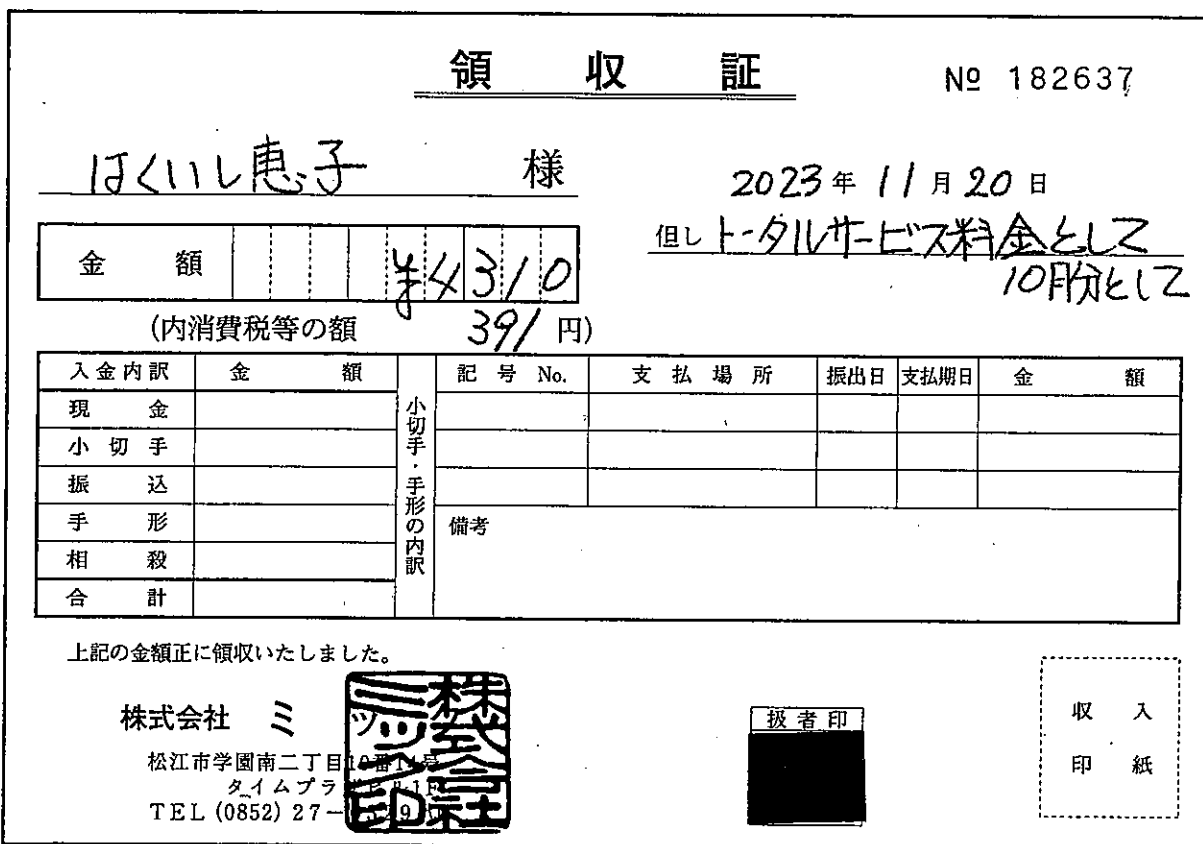 領収証
№ 182637
はくいし恵子 様
2023年11月20日
但し トータルサービス料金として
10月分として
金額 ¥4310
(内消費税等の額 391円)
入金内訳 金額 小切手・手形の内訳 記号No. 支払場所 振出日 支払期日 金額
現金
小切手
振込
手形 備考
相殺
合計
上記の金額正に領収いたしました。
株式会社 ミツ
松江市学園南二丁目10番14号
タイムプラ
TEL (0852) 27-
株式会社
扱者印
収入
印紙